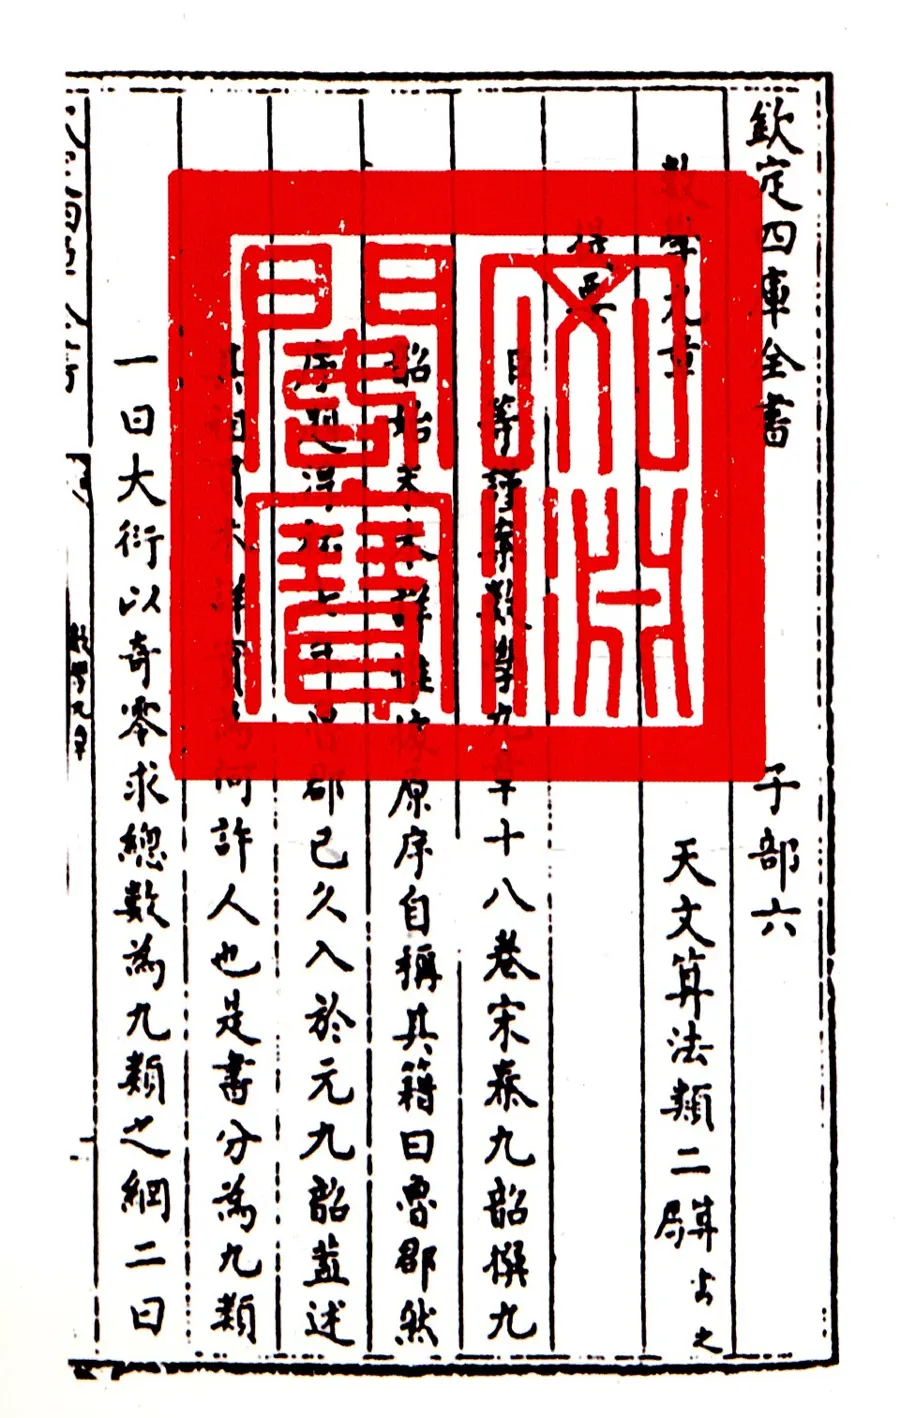 欽定四庫全書 子部六
數學九章 天文算法類二 算書之屬
提要
臣等謹案數學九章十八卷宋秦九韶撰九
韶始末未詳惟據原序自稱其籍曰魯郡然
序題淳祐七年魯郡已久入於元九韶蓋述
其祖貫未詳實為何許人也是書分為九類
一曰大衍以奇零求總數為九類之綱二曰
數學九章
文淵
閣寶